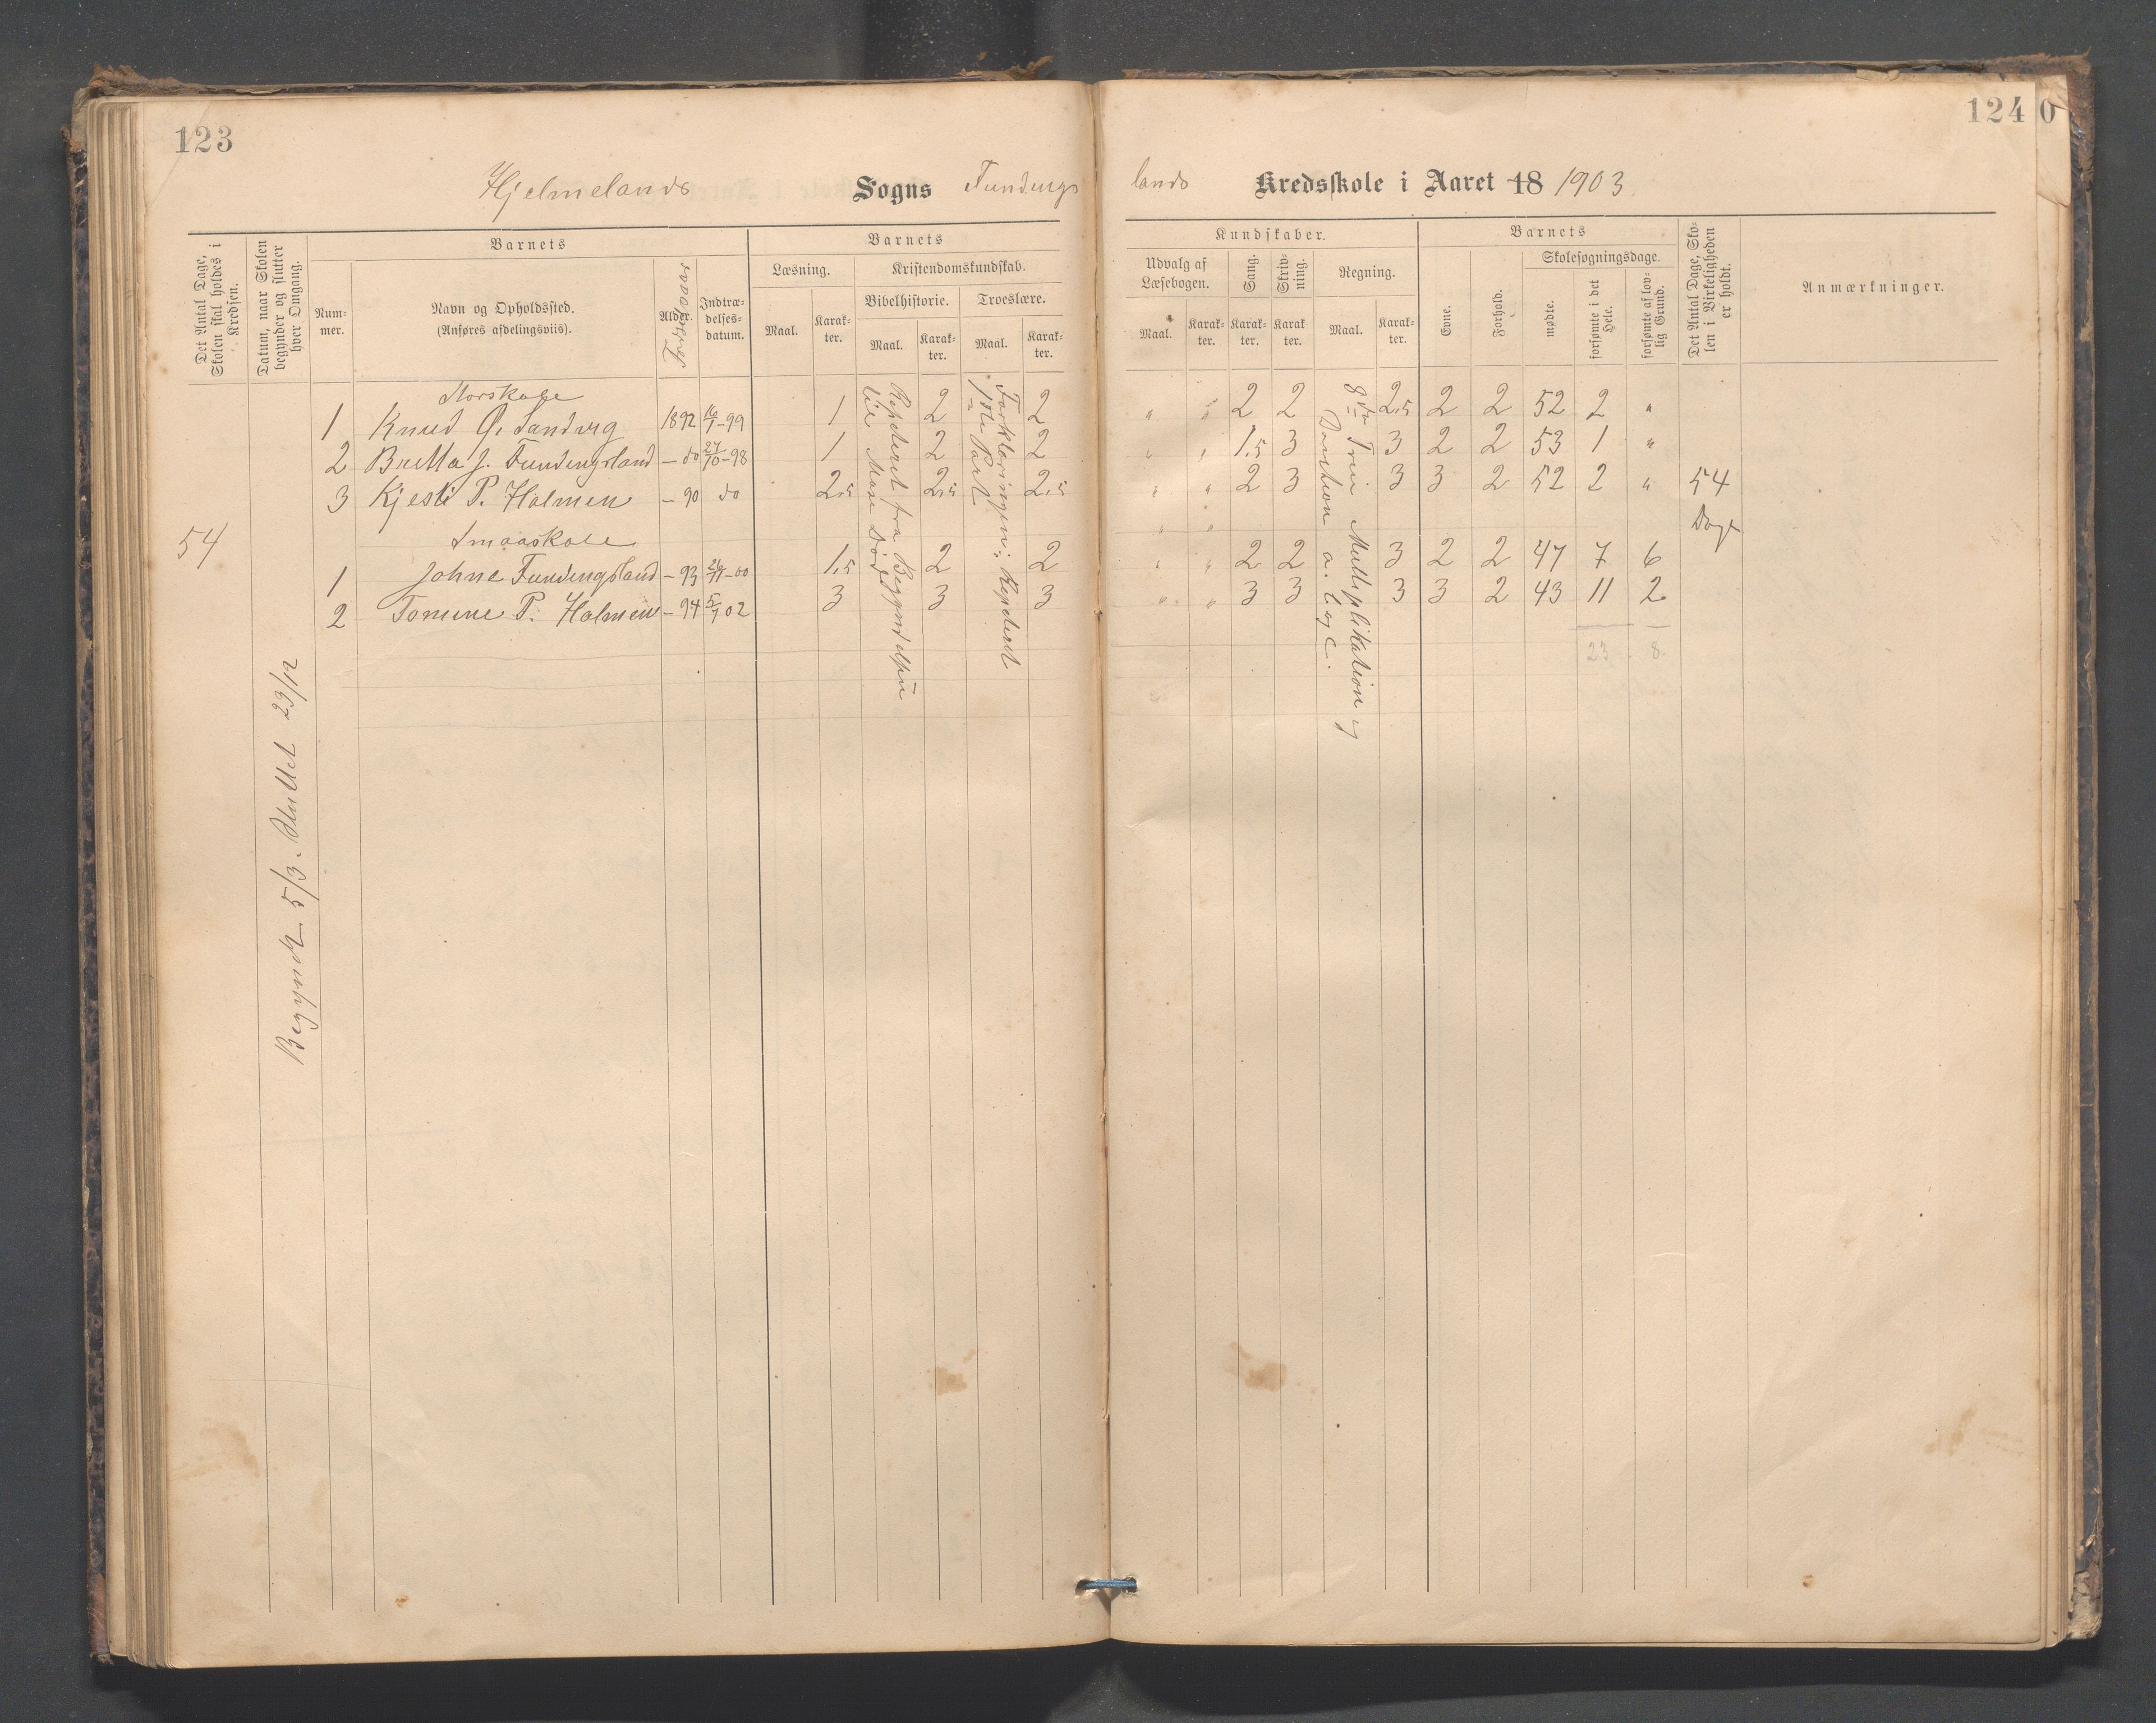 123
124 0
Hjelmelands Sogns Fundings
lands Kredsskole i Aaret 18 1903
Det Antal Dage, Skolen skal holdes i Kredsen.
Datum, naar Skolen begynder og slutter hver Omgang.
Barnets
Num-
mer.
Navn og Opholdssted.
(Anføres afdelingsviis).
Alder.
Fødselsaar
Indtræ-
delses-
datum.
Barnets
Læsning.
Maal.
Karak-
ter.
Kristendomskundskab.
Bibelhistorie.
Maal.
Karak-
ter.
Troeslære.
Maal.
Karak-
ter.
Kundskaber.
Udvalg af
Læsebogen.
Maal.
Karak-
ter.
Sang.
Karak-
ter.
Skriv-
ning.
Karak
ter.
Regning.
Maal.
Karak-
ter.
Barnets
Evne.
Forhold.
Skolesøgningsdage.
mødte.
forsømte i det Hele.
forsømte af lov-
lig Grund.
Det Antal Dage, Sko-
len i Virkeligheden
er holdt.
Anmærkninger.
Storskole
1 Knud Ø. Sandvig 1892 16/7-99 1 2 2 " " 2 2 2,5 2 2 52 2 "
2 Britta J. Fundingsland - do 27/10-98 1 2 2 " " 1,5 3 3 2 2 53 1 "
3 Kjesti P. Holmen - 90 do 2,5 2,5 2,5 " " 2 3 3 3 2 52 2 " 54
Dage
54
Smaaskole
1 Johne Fundingsland - 93 26/11-00 1,5 2 2 " " 2 2 3 2 2 47 7 6
2 Tomine P. Holmen - 94 5/7 02 3 3 3 " " 3 3 3 3 2 43 11 2
23 8
Begyndt 5/3. Sluttet 23/12
Repeteret fra Begyndelsen
til Mose Død
Forklaringen: Repeteret
1ste Part
8 de Trin Multiplikation og
Division a. b og c.